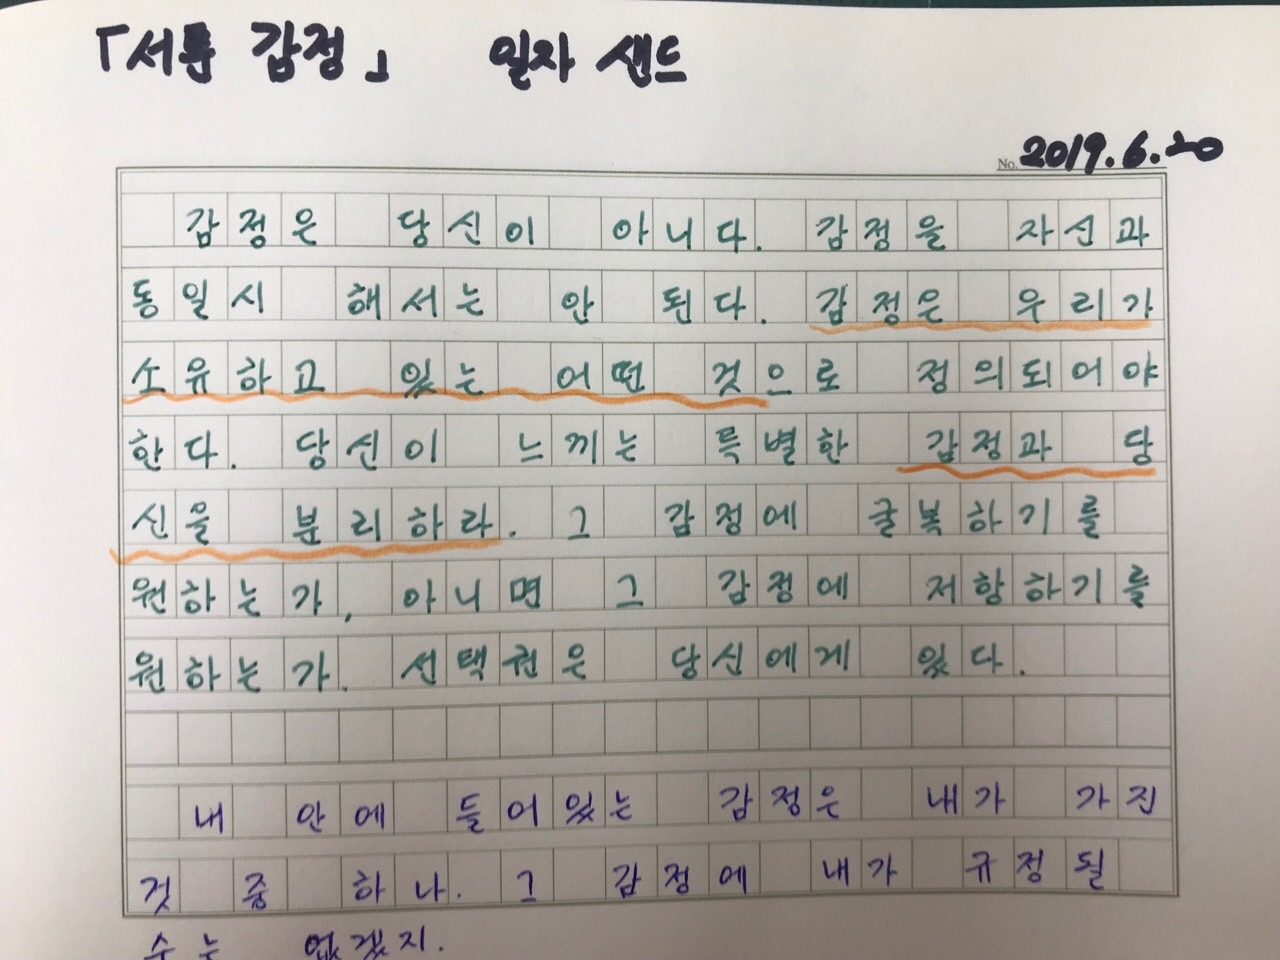 「서툰 감정」 일자 샌드
No. 2019.6.20
감정은 당신이 아니다. 감정을 자신과
동일시 해서는 안 된다. 감정은 우리가
소유하고 있는 어떤 것으로 정의되어야
한다. 당신이 느끼는 특별한 감정과 당
신을 분리하라. 그 감정에 굴복하기를
원하는가, 아니면 그 감정에 저항하기를
원하는가. 선택권은 당신에게 있다.
내 안에 들어있는 감정은 내가 가진
것 중 하나. 그 감정에 내가 규정될
수는 없겠지.